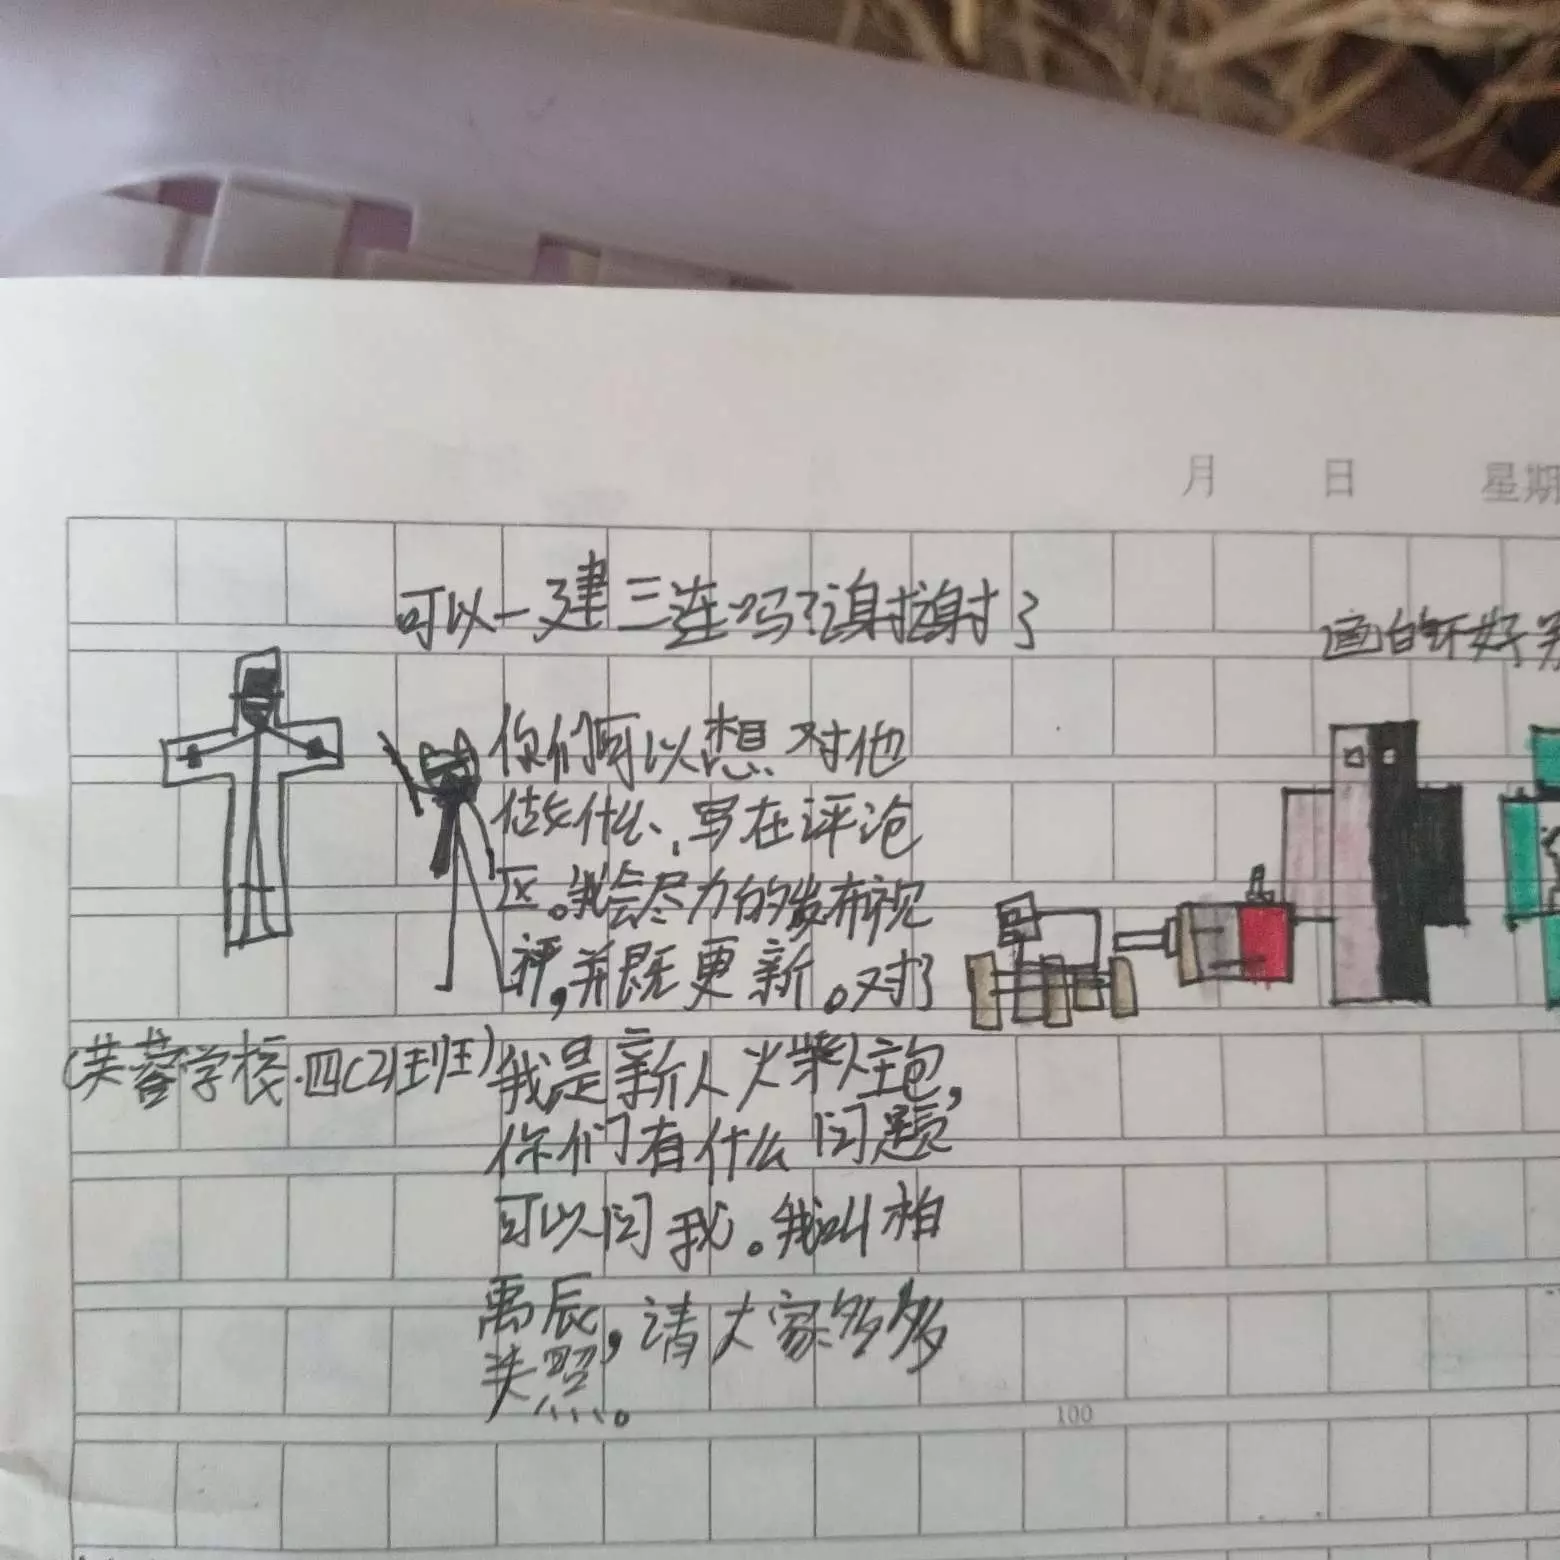 月 日 星期
可以一建三连吗?谢谢了
画的不好,别
你们可以想对他
做什么、写在评论
区。我会尽力的发布视
评,并既更新。对了
(芙蓉学校.四(2)班)
我是新人火柴人主包,
你们有什么问题
可以问我。我叫柏
禹辰,请大家多多
关照。
100